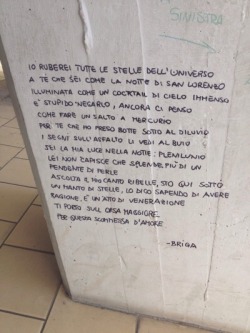 SINISTRA
IO RUBEREI TUTTE LE STELLE DELL'UNIVERSO
A TE CHE SEI COME LA NOTTE DI SAN LORENZO
ILLUMINATA COME UN COCKTAIL DI CIELO IMMENSO
E' STUPIDO NEGARLO, ANCORA CI PENSO
COME FARE UN SALTO A MERCURIO
PER TE CHE HO PRESO BOTTE SOTTO AL DILUVIO
I SEGNI SULL'ASFALTO LI VEDI AL BUIO
SEI LA MIA LUCE NELLA NOTTE: PLENILUNIO
LEI NON CAPISCE CHE SPLENDE PIÙ DI UN
PENDENTE DI PERLE
ASCOLTA IL MIO CANTO RIBELLE, STO QUI SOTTO
UN MANTO DI STELLE, LO DICO SAPENDO DI AVERE
RAGIONE, E' UN ATTO DI VENERAZIONE
TI PORTO SULL'ORSA MAGGIORE
PER QUESTA SCOMMESSA D'AMORE
-BRIGA